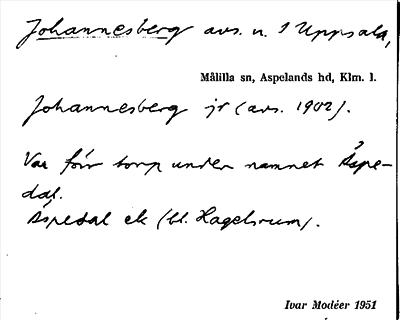 Johannesberg avs. n. 1 Uppsala,
Målilla sn, Aspelands hd, Klm. l.
Johannesberg jr (avs. 1902).
Var förr torp under namnet Äspe-
dal.
Äspedal ek (bl. Hagelsrum).
Ivar Modéer 1951